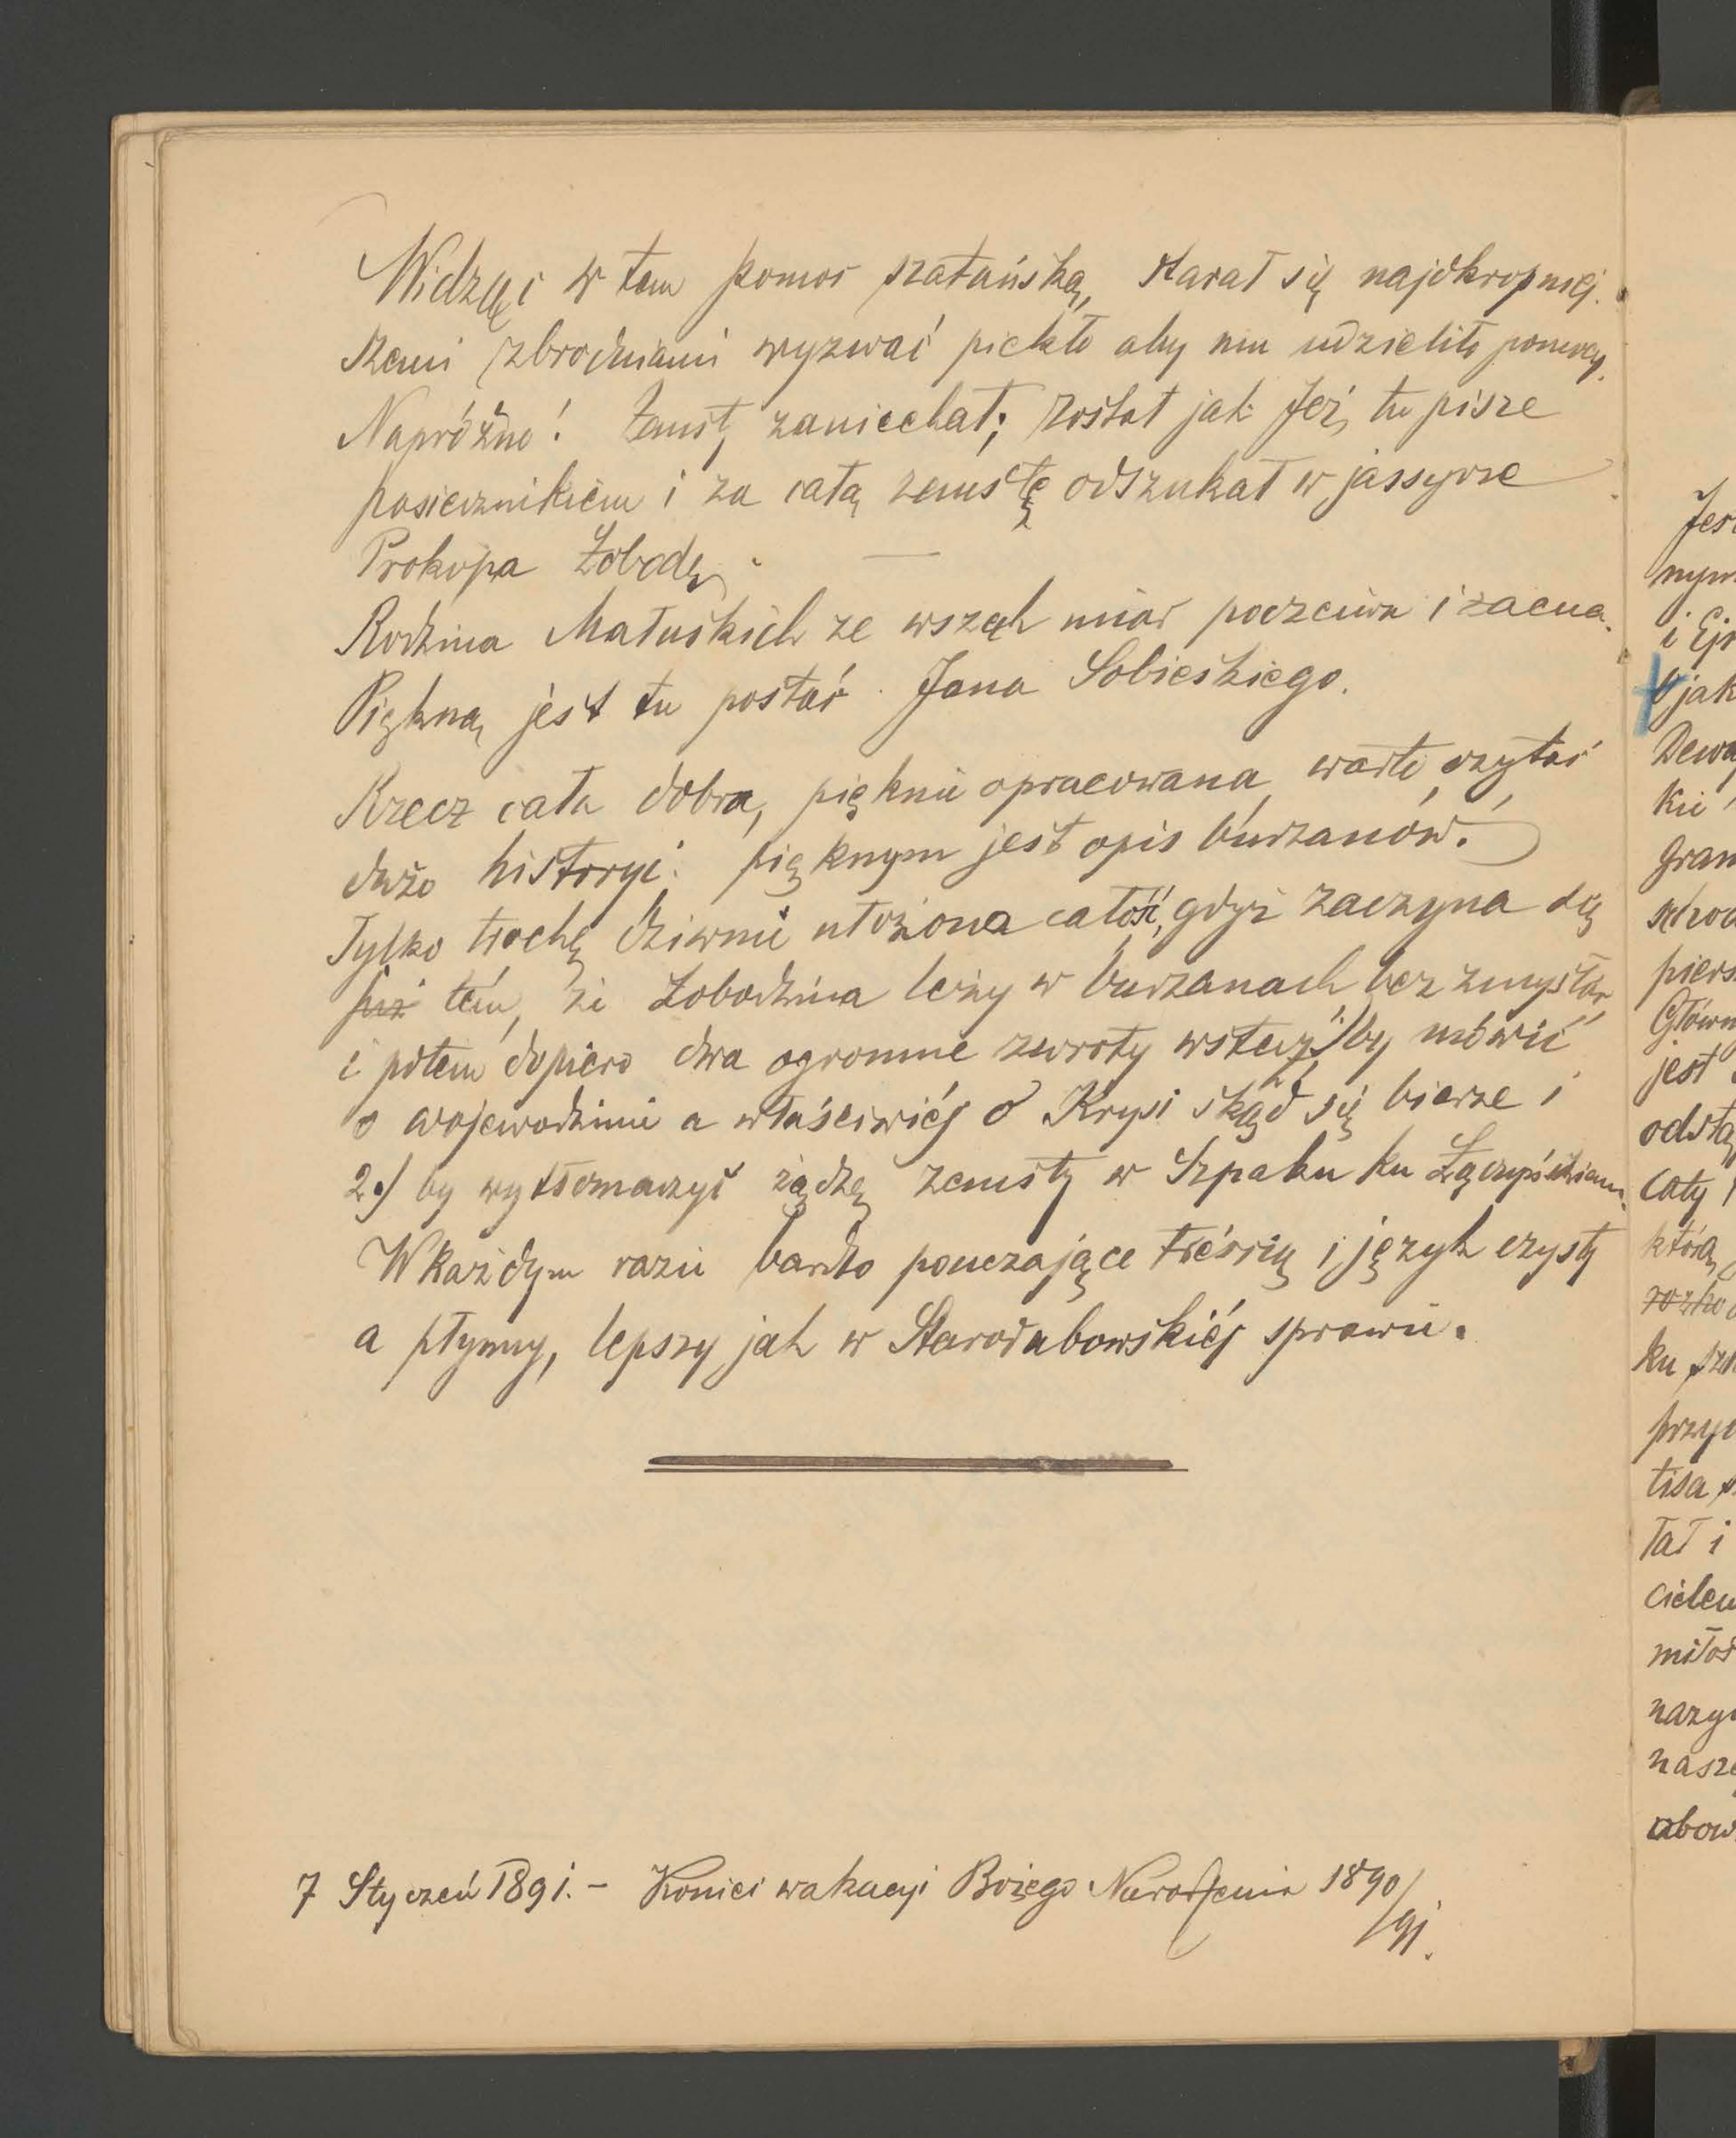 Widząc w tem pomoc szatańską, starał się najokropniej-
szemi zbrodniami wyzwać piekło aby mu udzieliło pomocy.
Napróżno! Zemsty zaniechał; został jak Jeż tu pisze
pasiecznikiem i za całą zemstę odszukał w jassyrze
Prokopa Łobodę. —
Rodzina Matuskich ze wszech miar poczciwa i zacna.
Piękną jest tu postać Jana Sobieskiego.
Rzecz cała dobra, pięknie opracowana, warto czytać,
dużo historyi. pięknym jest opis burzanów.
Tylko trochę dziwnie ułożona całość, gdyż zaczyna się
tém, że Łobodzina leży w burzanach bez zmysłów
i potem dopiero dwa ogromne zwroty wstecz by mówić
o wojewodzinie a właściwiéj o Krysi skąd się bierze i
2.) by wytłomaczyć żądzę zemsty w Szpaku ku
W każdym razie bardzo pouczające treścią i język czysty
a płynny, lepszy jak w Starodubowskiéj sprawie.
7 Styczeń 1891. – Koniec wakacyi Bożego Narodzenia 1890/91.
Jest
i Ejs
jak
kie
gran
piers
Główn
jest
odstą
cały
którą
ku
przy
tisa
tał i
miłoś
nazy
nasze